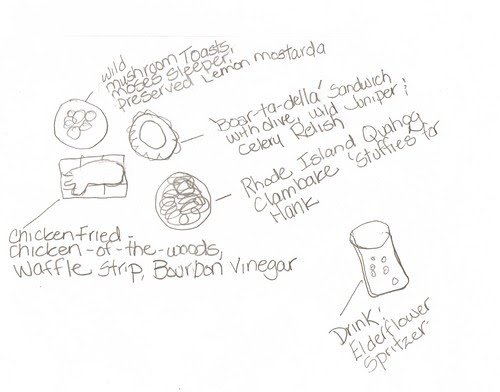 wild
mushroom Toasts,
Moses Sleeper,
preserved Lemon mostarda
'Boar-ta-della' Sandwich
with olive, wild Juniper ;
celery Relish
Rhode Island Quahog
Clambake 'Stuffies' for
Hank
Chicken fried -
Chicken-of-the-woods,
Waffle strip, Bourbon Vinegar
Drink;
Elderflower
Spritzer